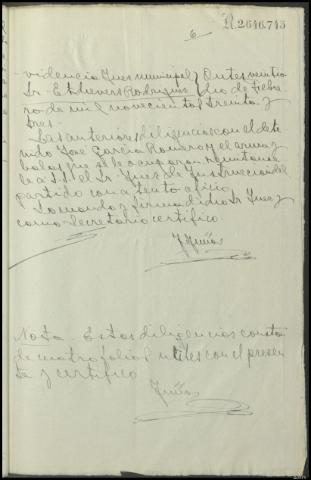 6
R.2646.743
videncia Juez municipal
Sr. Etchevers Rodriguez dio de Febre
ro de mil novecientos treinta y
tres.
Las anteriores diligencias con el dete
nido José Garcia Romero y el arma y
balas que se le ocuparon, remitanse
le a S.S. el Sr. Juez de Instruccion del
partido con atento oficio.
Lo mando y firma dicho Sr Juez y
como Secretario certifico.
Nota. Estas diligencias constan
de cuatro folios utiles con el presen
te y certifico